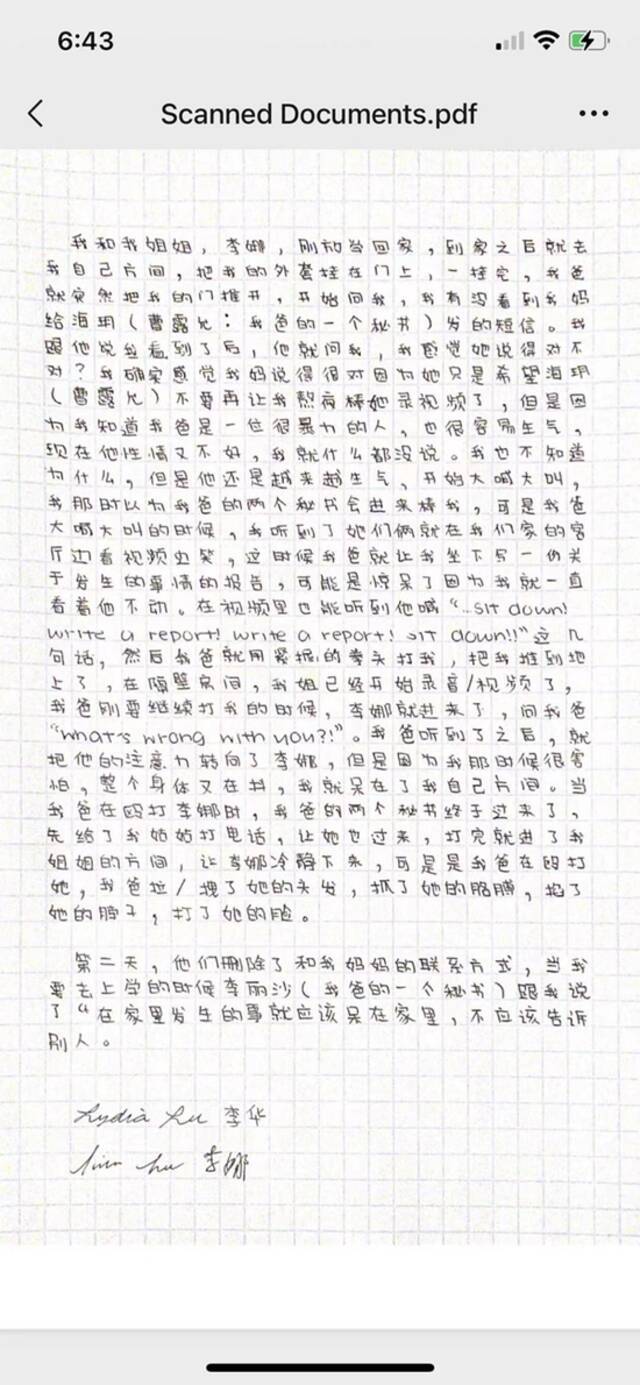 6:43
Scanned Documents.pdf
我和我姐姐，李娜，刚放学回家，到家之后就去
我自己房间，把我的外套挂在门上，一挂完，我爸
就突然把我的门推开，开始问我，我有没看到我妈
给海玥（曹露允：我爸的一个秘书）发的短信。我
跟他说我看到了后，他就问我，我感觉她说得对不
对？我确实感觉我妈说得很对因为她只是希望海玥
（曹露允）不要再让我熬夜棒她录视频了，但是因
为我知道我爸是一位很暴力的人，也很容易生气，
现在他性情又不好，我就什么都没说。我也不知道
为什么，但是他还是越来越生气，开始大喊大叫，
我那时以为我爸的两个秘书会进来棒我，可是我爸
大喊大叫的时候，我听到了她们俩就在我们家的客
厅边看视频边笑，这时候我爸就让我坐下写一份关
于发生的事情的报告，可能是惊呆了因为我就一直
看着他不动。在视频里也能听到他喊“..sit down!
write a report! write a report! sit down!!”这几
句话，然后我爸就用紧握的拳头打我，把我推到地
上了，在隔壁房间，我姐已经开始录音/视频了，
我爸刚要继续打我的时候，李娜就进来了，问我爸
“what's wrong with you?!”。我爸听到了之后，就
把他的注意力转向了李娜，但是因为我那时候很害
怕，整个身体又在抖，我就呆在了我自己房间。当
我爸在殴打李娜时，我爸的两个秘书终于过来了，
先给了我姑姑打电话，让她也过来，打完就进了我
姐姐的房间，让李娜冷静下来，可是是我爸在殴打
她，我爸拉/拽了她的头发，抓了她的胳膊，掐了
她的脖子，打了她的脸。
第二天，他们删除了和我妈妈的联系方式，当我
要去上学的时候李丽沙（我爸的一个秘书）跟我说
了“在家里发生的事就应该呆在家里，不应该告诉
别人。
Lydia Lu 李华
李娜